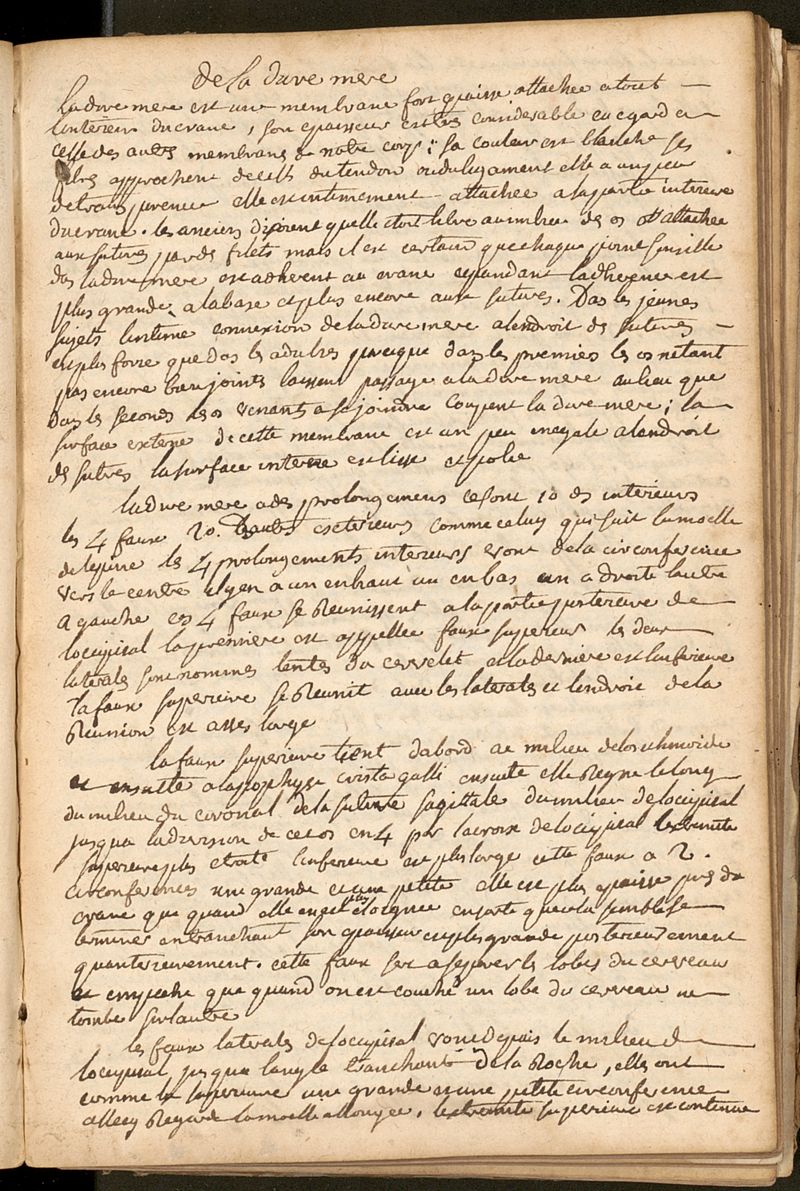 de la dure mere
la dure mere est une membrane fort epaisse attachee a tout
linterieur du crane, son epaisseur est tres considerable eu egard a
celle des autres membranes de notre corps; sa couleur est blanche ses
fibres approchent de celles du tendon ou du ligament elle a un peu
de transparence elle est intimement attachee a la partie interieure
du crane. les anciens disoient quelle etoit libre au milieu des os et attachee
aux sutures par des filets mais il est certain que chaque point
de la dure mere est adherent au crane cependant ladherence est
plus grande a la base et plus encore aux sutures. Dans les jeunes
sujets lintime connexion de la dure mere a lendroit des sutures
est plus forte que dans les adultes puisque dans les premiers les os netant
pas encore bien joints laissent passage a la dure mere au lieu que
dans les seconds les os venants a se joindre coupent la dure mere; la
surface externe de cette membrane est un peu inegale a lendroit
des sutures la surface interne est lisse et polie
la dure mere a des prolongemens ce sont 1o des interieurs
les 4 faux 2o. dautres exterieurs comme celuy qui suit la moelle
de lepine les 4 prolongements interieurs vont de la circonference
vers le centre il yen a un en haut un en bas un a droite lautre
a gauche ces 4 faux se reunissent a la partie posterieure de
loccipital la premiere est appellee faux superieure les deux
laterales sont nommes tentes du cervelet et la derniere est linferieure
la faux superieure se reunit avec les laterales et lendroit de la
reunion est asses large
la faux superieure tient dabord au milieu de los ethmoide
et ensuite a lapophyse crista galli ensuite elle regne le long
du milieu du coronal de la suture sagittale du milieu de loccipital
jusqua la division de cet os en 4 par la croix de loccipital lextremite
superieure plus etroite linferieure est plus large cette faux a 2.
circonferences une grande et une petite elle est plus epaisse pres du
crane que quand elle en est plus eloignee en sorte quelle semble se
terminer en tranchant son epaisseur est plus grande posterieurement
quanterieurement. cette faux sert a separer les lobes du cerveau
et empeche que quand on est couché un lobe du cerveau ne
tombe sur lautre
les faux laterales de loccipital vont depuis le milieu de
loccipital jusqua langle tranchant de la roche, elles ont
comme la superieure une grande et une petite circonference
celle cy regarde la moelle allongee, lextremite superieure est contenue